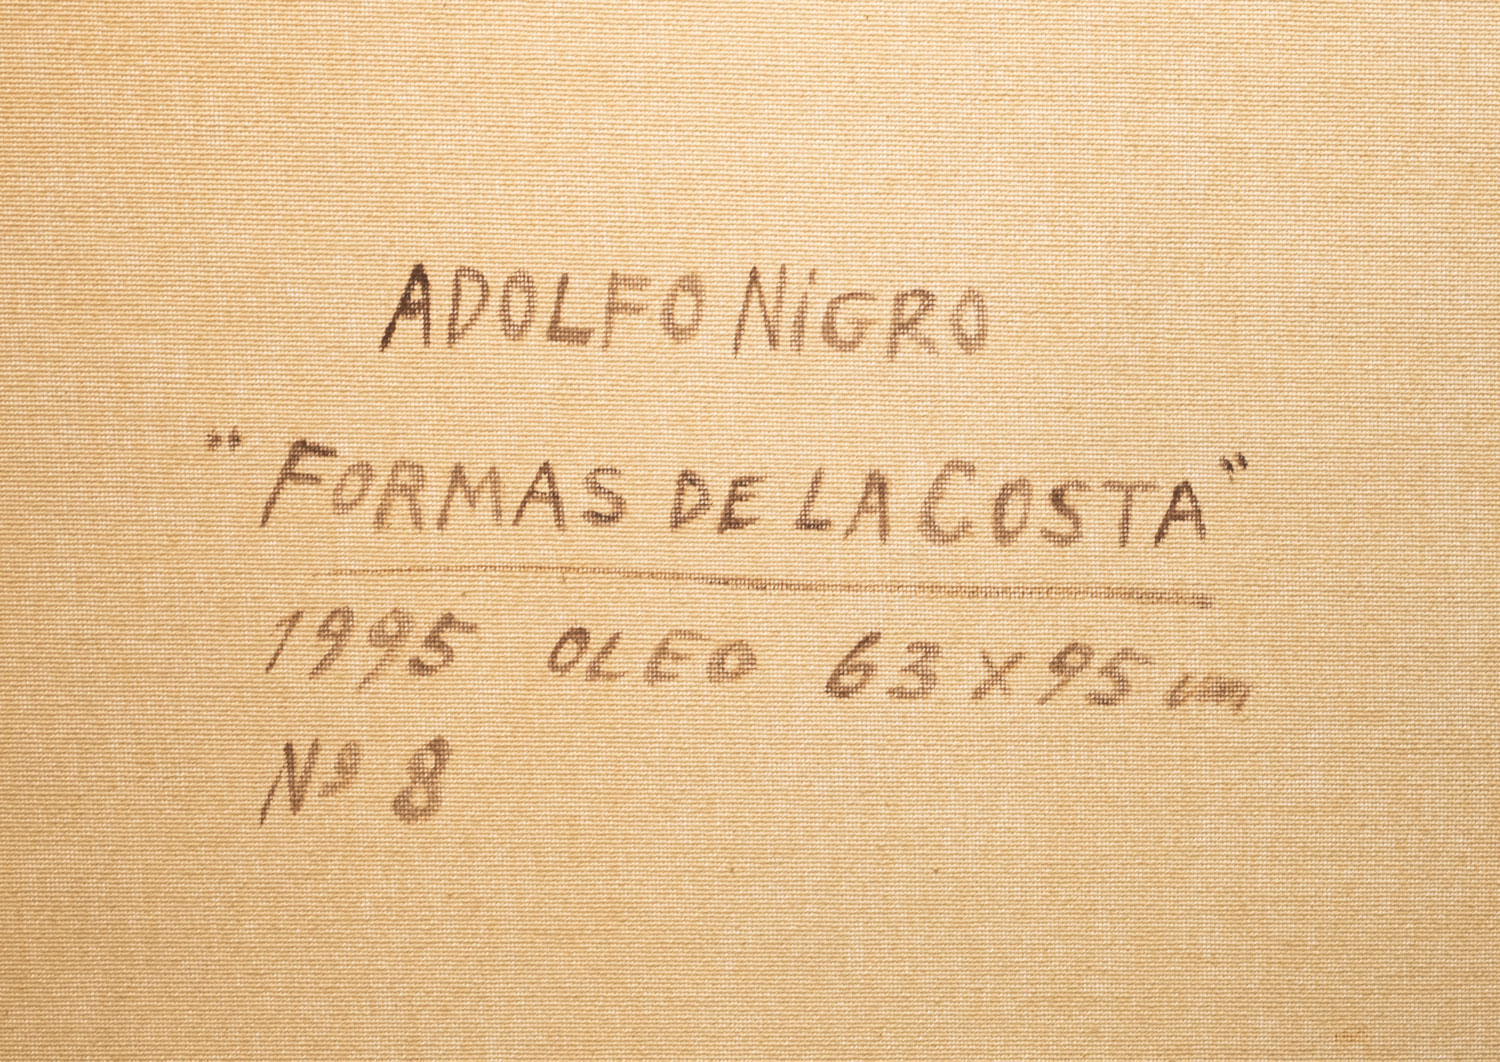 ADOLFO NiGRO
"FORMAS DE LA COSTA"
1995 OLEO 63 x 95 cm
Nº 8